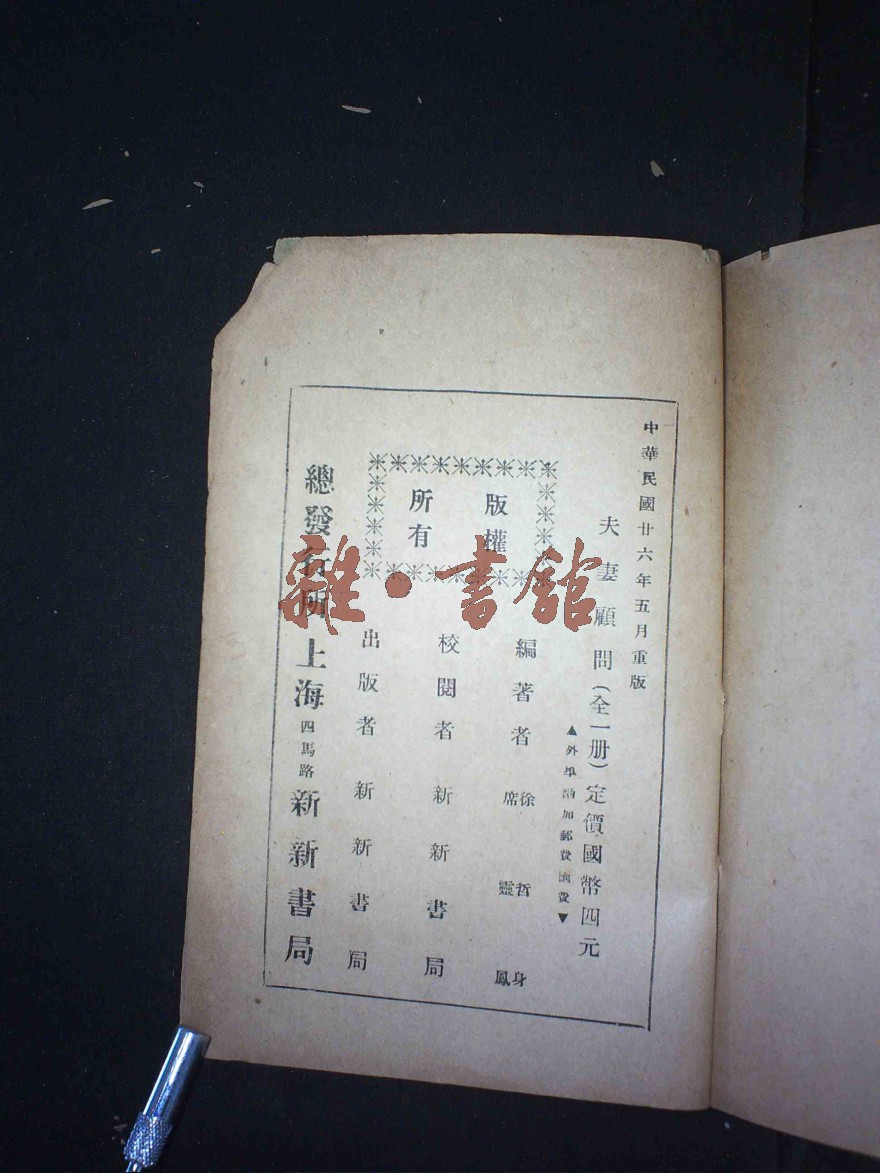 中華民國廿六年五月重版
夫妻顧問(全一册)定價國幣四元
▲外埠酌加郵費匯費▼
版權
所有
編著者 徐哲身
席靈鳳
校閱者 新新書局
出版者 新新書局
總發行所 上海四馬路新新書局
雜·書館